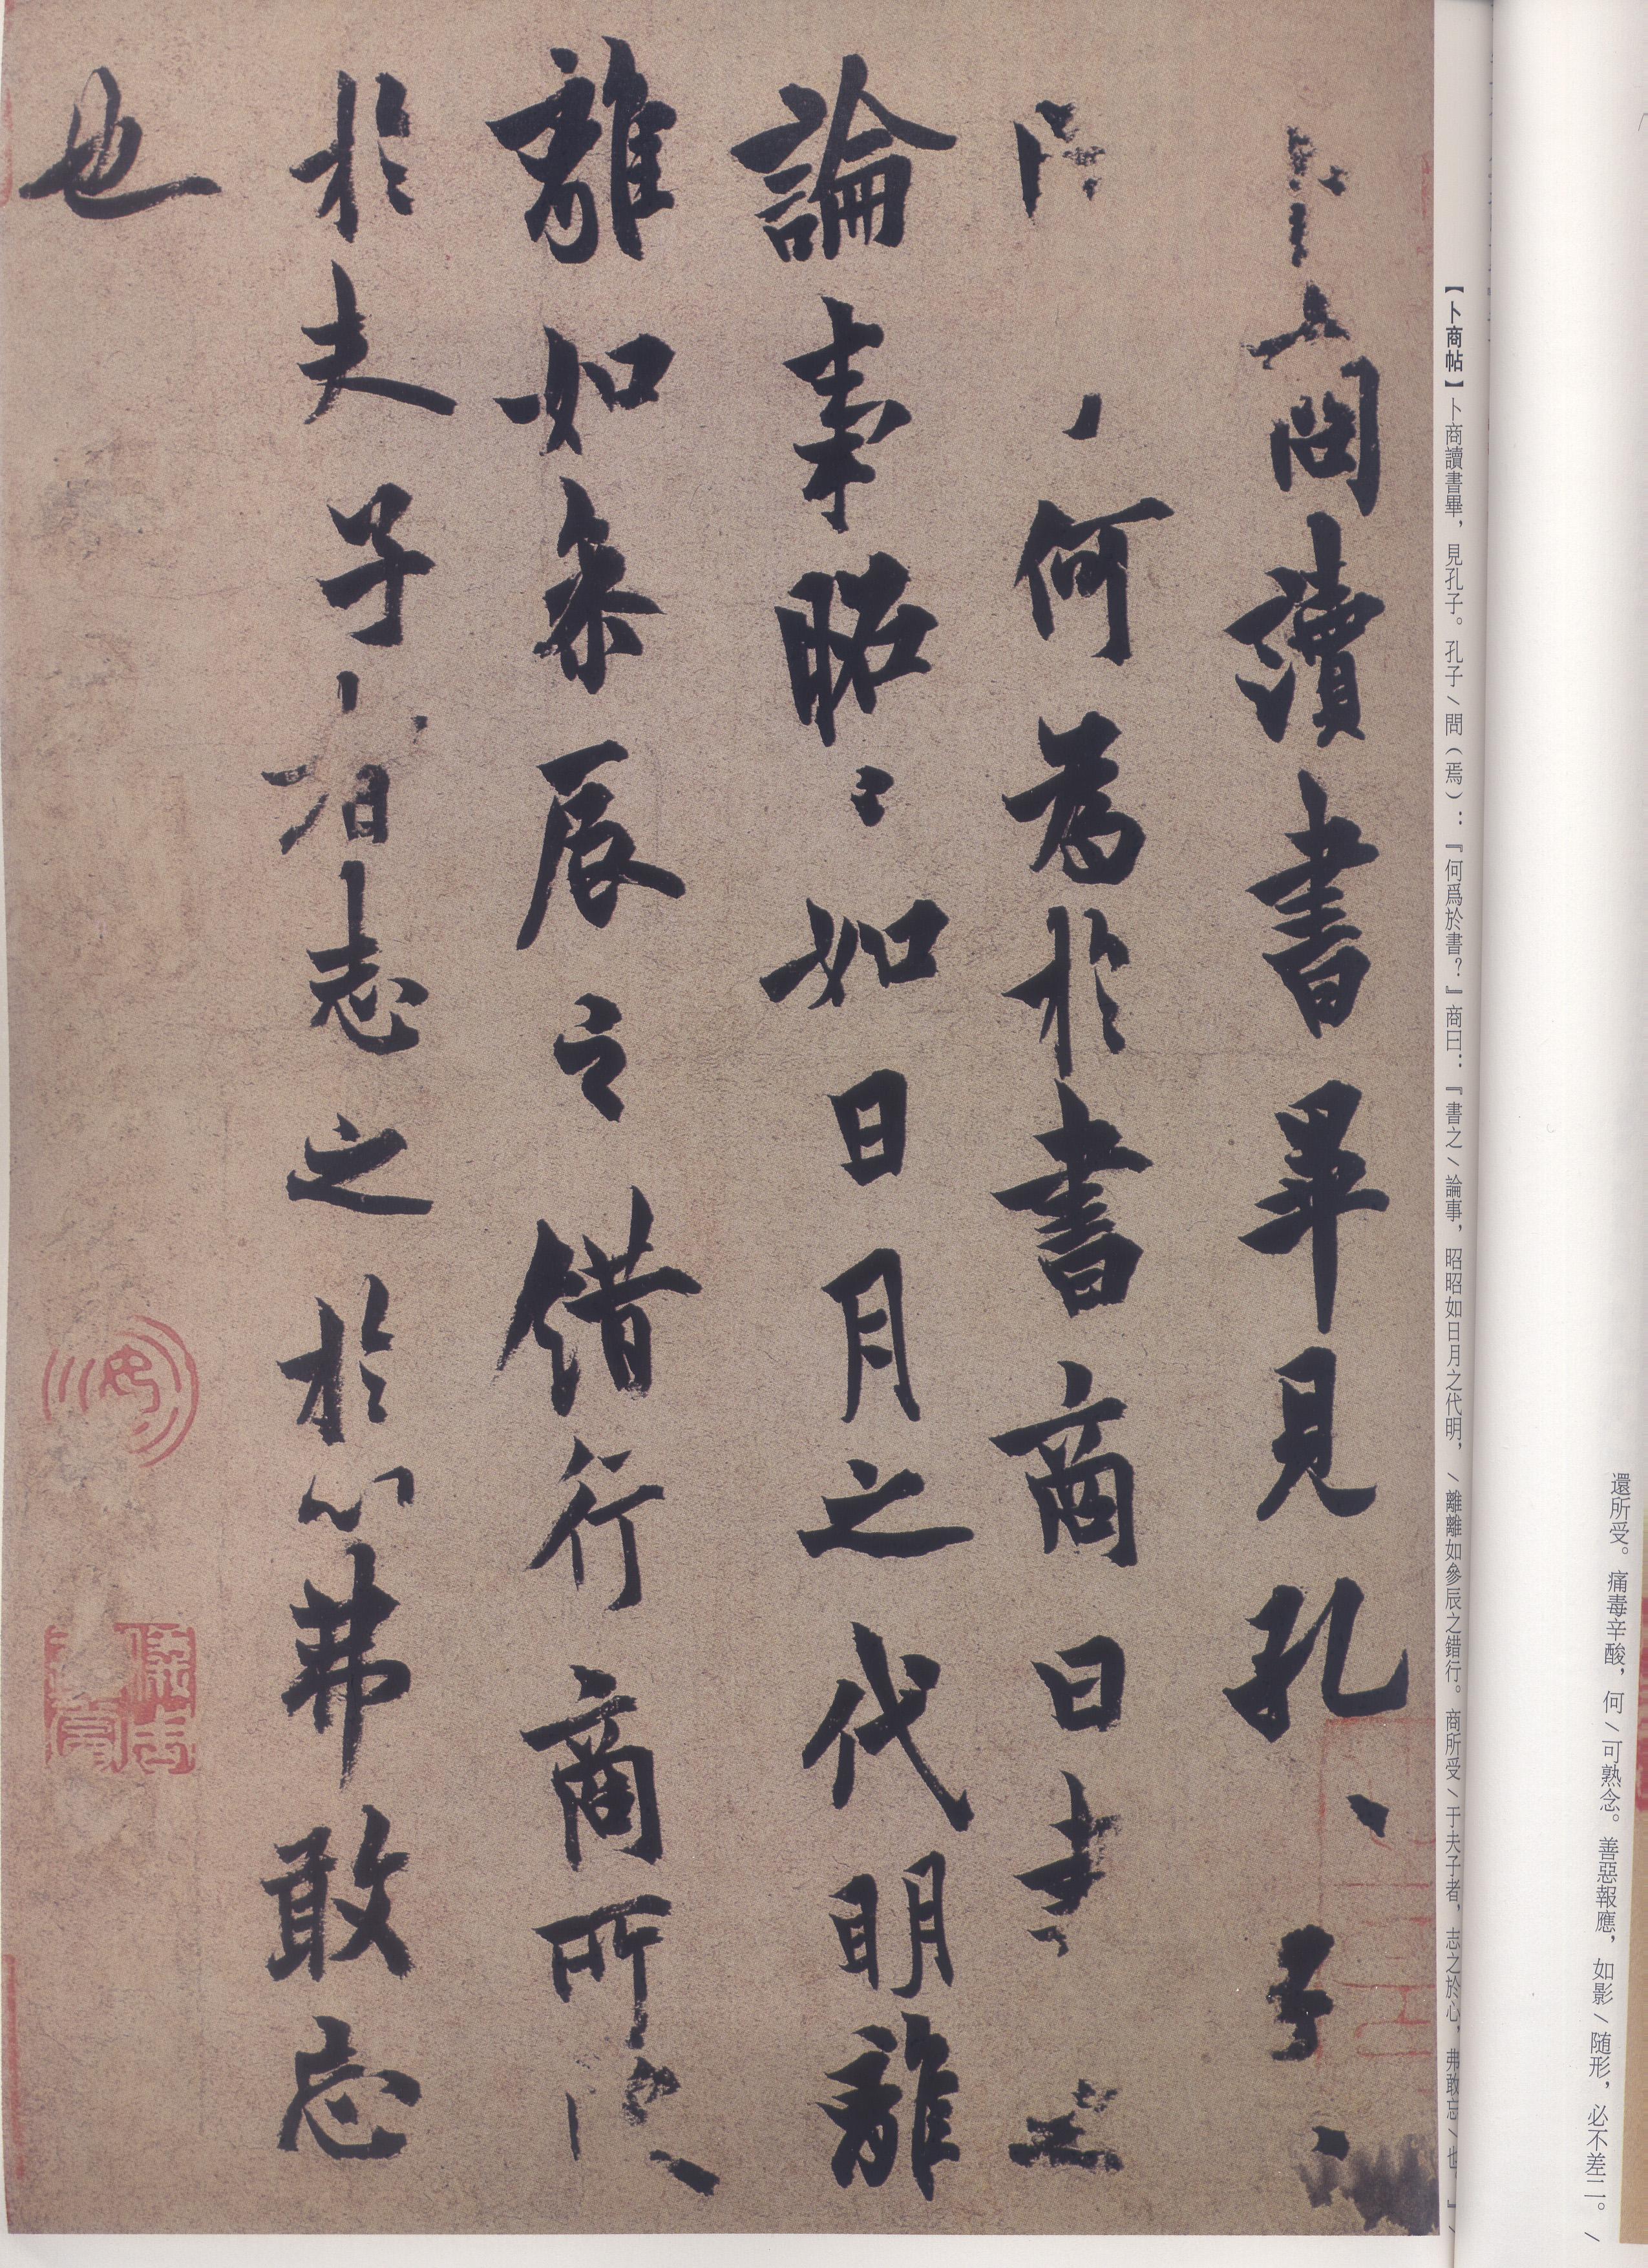 還所受。痛毒辛酸，何\可熟念。善惡報應，如影\随形，必不差二。\
【卜商帖】卜商讀書畢，見孔子。孔子\問（焉）：『何爲於書？』商曰：『書之\論事，昭昭如日月之代明，\離離如參辰之錯行。商所受\于夫子者，志之於心，弗敢忘\也。』\
卜商讀書畢見孔、子、
問、何為於書商曰書之
論事昭〻如日月之代明離
離如叅辰之錯行商所受
於夫子者志之於心弗敢忘
也